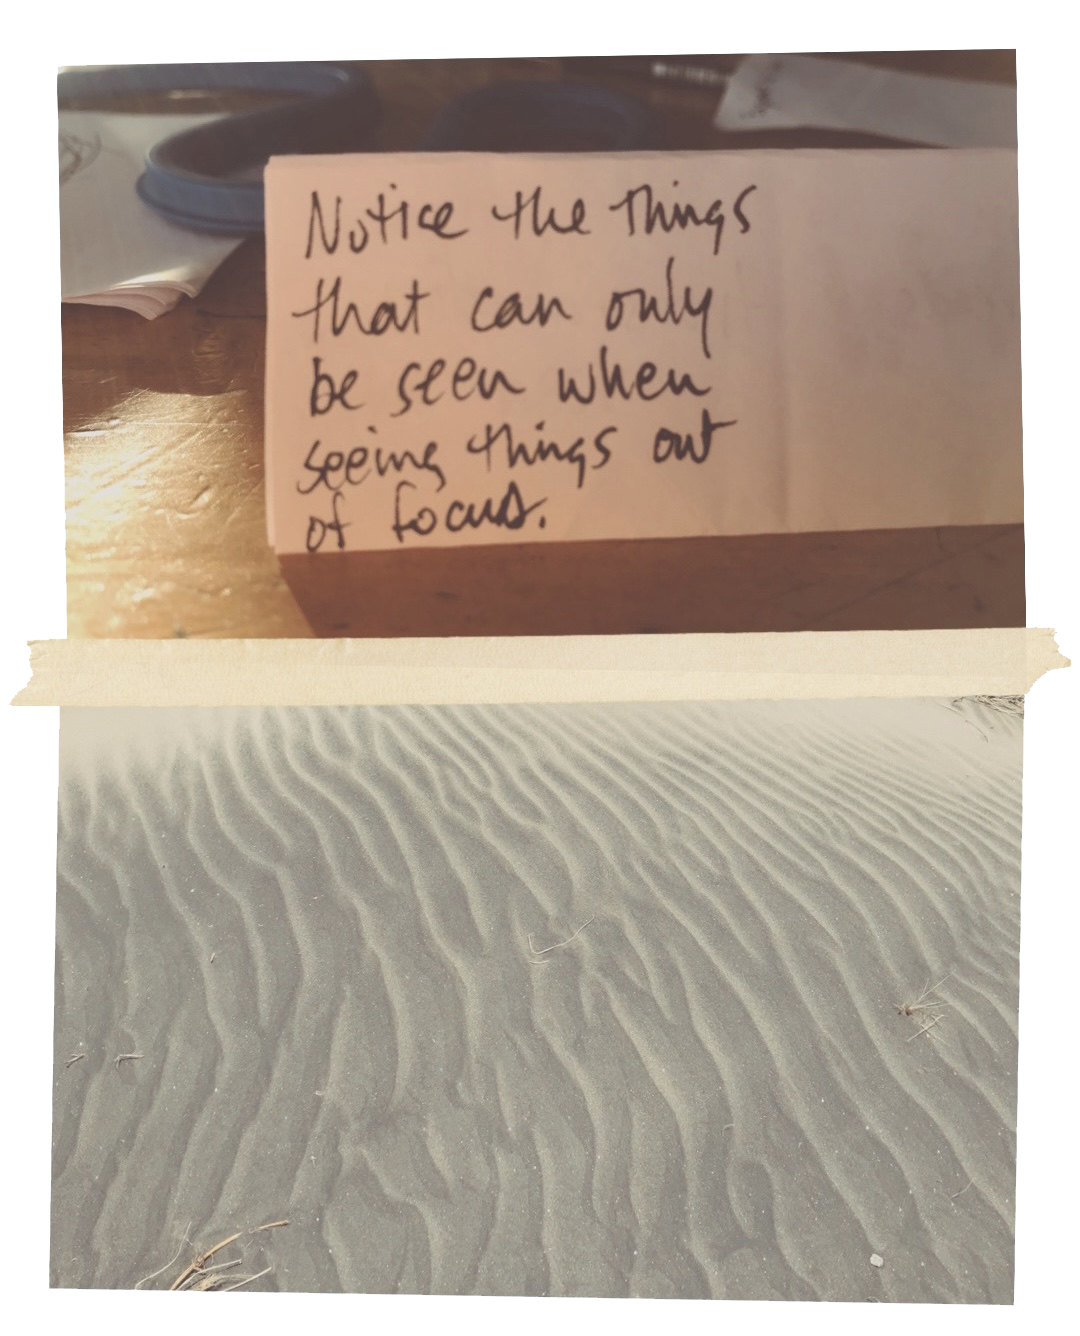 Notice the things
that can only
be seen when
seeing things out
of focus.